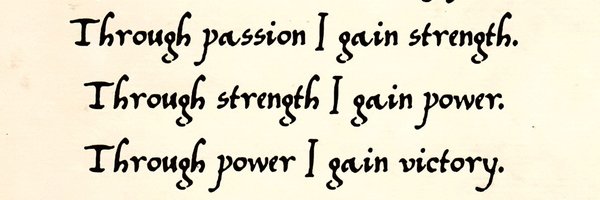 Through passion I gain strength.
Through strength I gain power.
Through power I gain victory.